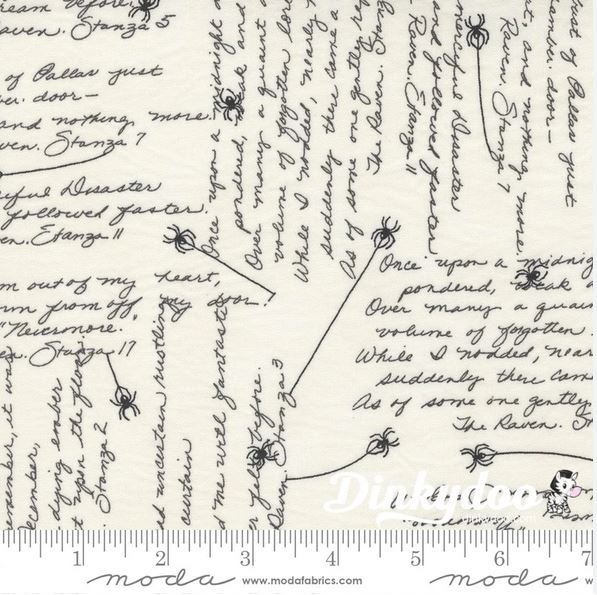 ream before.
aven. Stanza 5
of Pallas just
er. door—
and nothing more.
ven. Stanza 7
iful Disaster
followed faster
en. Stanza 11
m out of my heart,
rm from off, my door!
"Nevermore."
e. Stanza 17
ember, it was
ecember,
dying ember
t upon the floor.
Stanza 2
d uncertain rustling
curtain
d me with fantasti
er felt before.
Raven. Stanza 3
Once upon a midnight d
pondered, weak and
Over many a quaint a
volume of forgotten lor
While I nodded, nearly
suddenly there came a
As of some one gently r
The Raven. Stanz
and followed faster
Raven. Stanza 11
merciful Disaster
Raven. Stanza 7
rt, and nothing more
ember. door—
bust of Pallas just
Once upon a midnig
pondered, weak a
Over many a quain
volume of forgotten
While I nodded, near
suddenly there cam
As of some one gently
The Raven. St
Dinkydoo
1 2 3 4 5 6 7
moda www.modafabrics.com moda